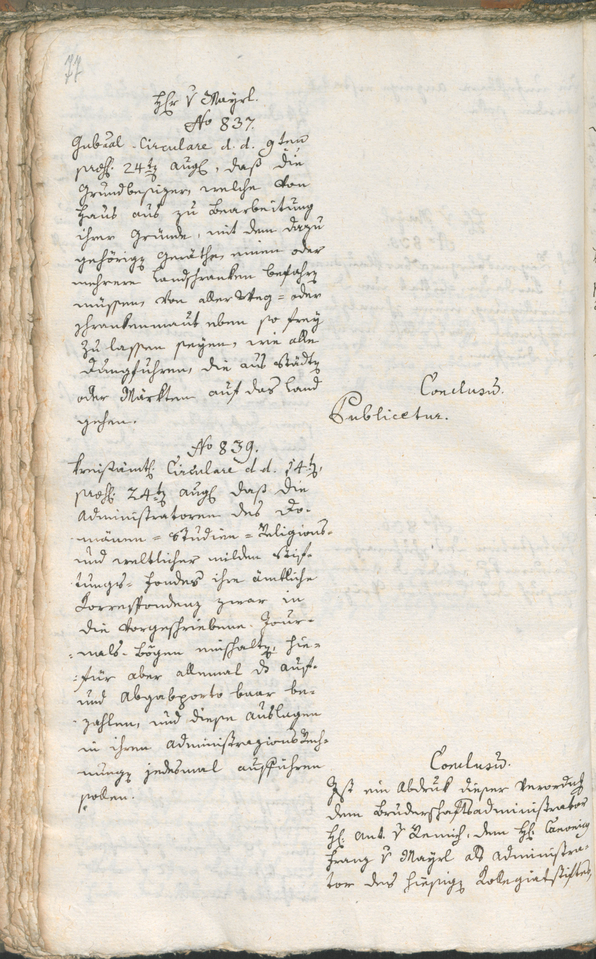 77
H: v Mayrl.
No 837.
Gubr̄al-Circulare d. d. 9ten
præs. 24t Aug, daß die
Grundbesizer, welche von
Haus aus zu Bearbeitung
ihrer Gründe, mit dem dazu
gehörig Geräthe, einen oder
mehrere Landschranken befahrn
müssen, von aller Weg- oder
Schrankenmaut eben so frey
zu lassen seyen, wie alle
Dungfuhren, die aus Städtn
oder Märkten auf das Land
gehen.
Conclusū.
Publicetur.
No 839.
Kreisämtl. Circulare d. d. 14t,
præs. 24t Aug daß die
Administratoren des Do-
mänen- Studien- Religions-
und weltlicher milden Stif-
tungs- Fondes ihre ämtliche
Korrespondenz zwar in
die vorgeschriebene Jour-
nals-Bögen einschaltn, hie-
für aber allemal das Auf-
und Abgabporto baar be-
zahlen, und diese Auslagen
in ihren AdministrazionsRech-
nungn jedesmal aufführen
sollen.
Conclusū.
Ist ein Abdruk dieser Verordng
dem Bruderschaftsadministrator
H: Ant. v Remich, dem H: Canonicus
Franz v Mayrl als Administra-
tor des hiesign Kollegiatstiftes,